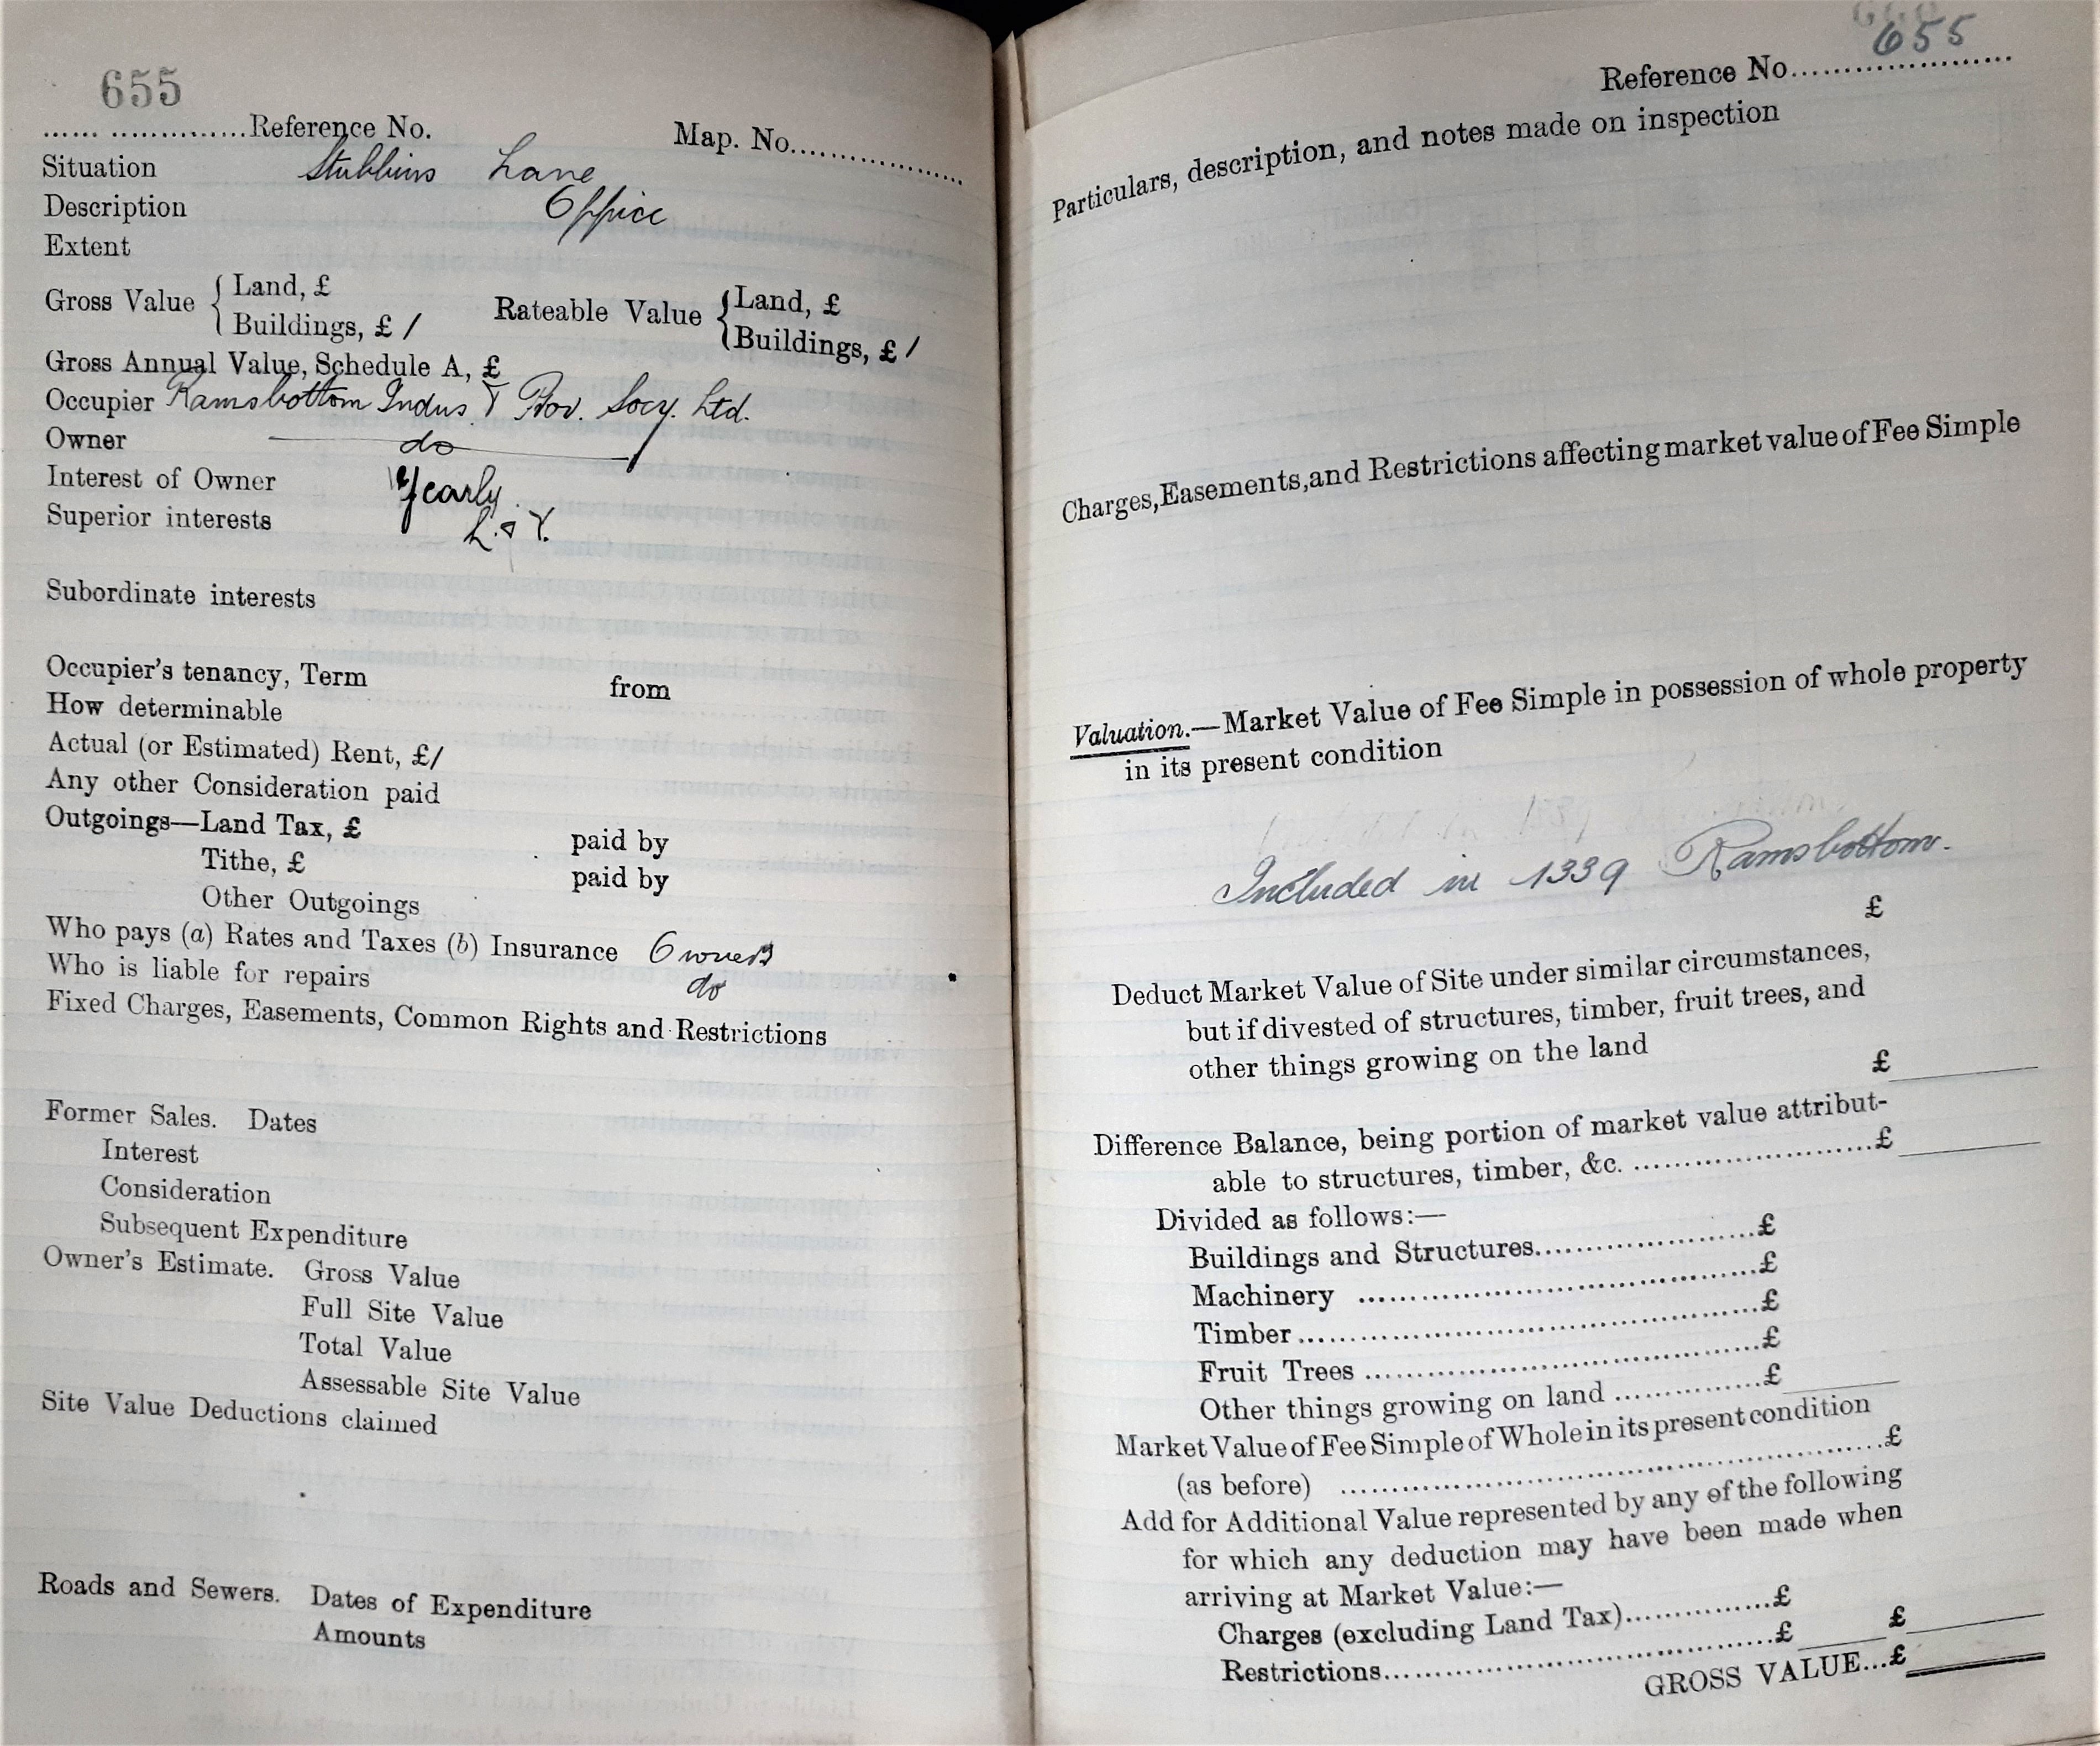 655
.....................Reference No. Map. No...................
Situation Stubbins Lane
Description Office
Extent
Gross Value { Land, £ Rateable Value { Land, £
Buildings, £ / Buildings, £ /
Gross Annual Value, Schedule A, £
Occupier Ramsbottom Indus & Prov. Socy. Ltd.
Owner do
Interest of Owner Yearly
Superior interests L. & Y.
Subordinate interests
Occupier's tenancy, Term from
How determinable
Actual (or Estimated) Rent, £/
Any other Consideration paid
Outgoings—Land Tax, £ paid by
Tithe, £ paid by
Other Outgoings
Who pays (a) Rates and Taxes (b) Insurance Owners
Who is liable for repairs do
Fixed Charges, Easements, Common Rights and Restrictions
Former Sales. Dates
Interest
Consideration
Subsequent Expenditure
Owner's Estimate. Gross Value
Full Site Value
Total Value
Assessable Site Value
Site Value Deductions claimed
Roads and Sewers. Dates of Expenditure
Amounts
655
Reference No.......................
Particulars, description, and notes made on inspection
Charges, Easements, and Restrictions affecting market value of Fee Simple
Valuation.—Market Value of Fee Simple in possession of whole property
in its present condition
Included in 1339 Ramsbottom.
£
Deduct Market Value of Site under similar circumstances,
but if divested of structures, timber, fruit trees, and
other things growing on the land
£
Difference Balance, being portion of market value attribut-
able to structures, timber, &c. .........................£
Divided as follows:—
Buildings and Structures.......................£
Machinery .........................................£
Timber...............................................£
Fruit Trees .........................................£
Other things growing on land ...............£
Market Value of Fee Simple of Whole in its present condition
(as before) .........................................................£
Add for Additional Value represented by any of the following
for which any deduction may have been made when
arriving at Market Value:—
Charges (excluding Land Tax)...............£
Restrictions.......................................£ £
GROSS VALUE...£